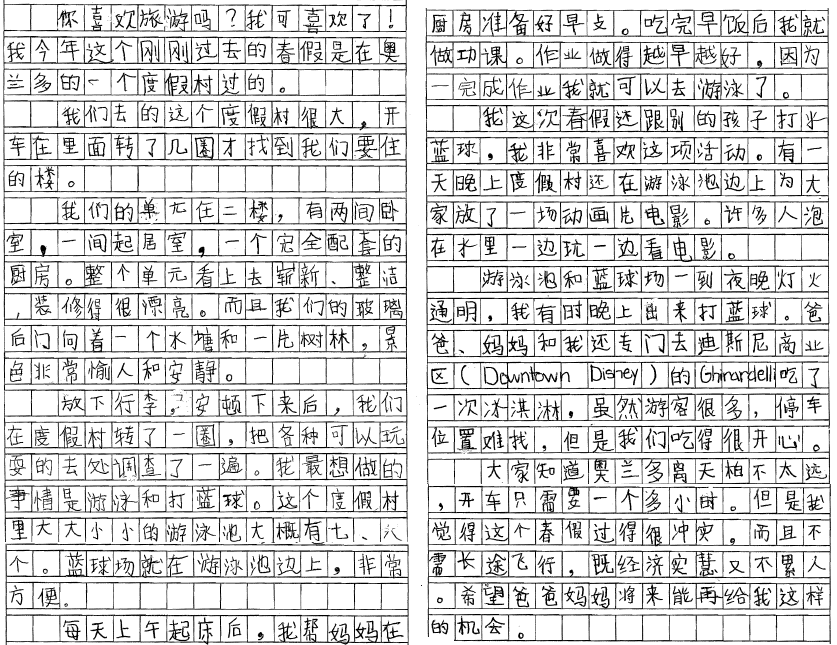 你喜欢旅游吗？我可喜欢了！
我今年这个刚刚过去的春假是在奥
兰多的一个度假村过的。
我们去的这个度假村很大，开
车在里面转了几圈才找到我们要住
的楼。
我们的单元在二楼，有两间卧
室，一间起居室，一个完全配套的
厨房。整个单元看上去崭新、整洁
，装修得很漂亮。而且我们的玻璃
后门向着一个水塘和一片树林，景
色非常愉人和安静。
放下行李，安顿下来后，我们
在度假村转了一圈，把各种可以玩
耍的去处调查了一遍。我最想做的
事情是游泳和打蓝球。这个度假村
里大大小小的游泳池大概有七、八
个。蓝球场就在游泳池边上，非常
方便。
每天上午起床后，我帮妈妈在
厨房准备好早点。吃完早饭后我就
做功课。作业做得越早越好，因为
一完成作业我就可以去游泳了。
我这次春假还跟别的孩子打水
蓝球，我非常喜欢这项活动。有一
天晚上度假村还在游泳池边上为大
家放了一场动画片电影。许多人泡
在水里一边玩一边看电影。
游泳池和蓝球场一到夜晚灯火
通明，我有时晚上出来打蓝球。爸
爸、妈妈和我还专门去迪斯尼商业
区（Downtown Disney）的Ghirardelli吃了
一次冰淇淋。虽然游客很多，停车
位置难找，但是我们吃得很开心。
大家知道奥兰多离天柏不太远
，开车只需要一个多小时。但是我
觉得这个春假过得很冲实。而且不
需长途飞行，既经济实慧又不累人
。希望爸爸妈妈将来能再给我这样
的机会。